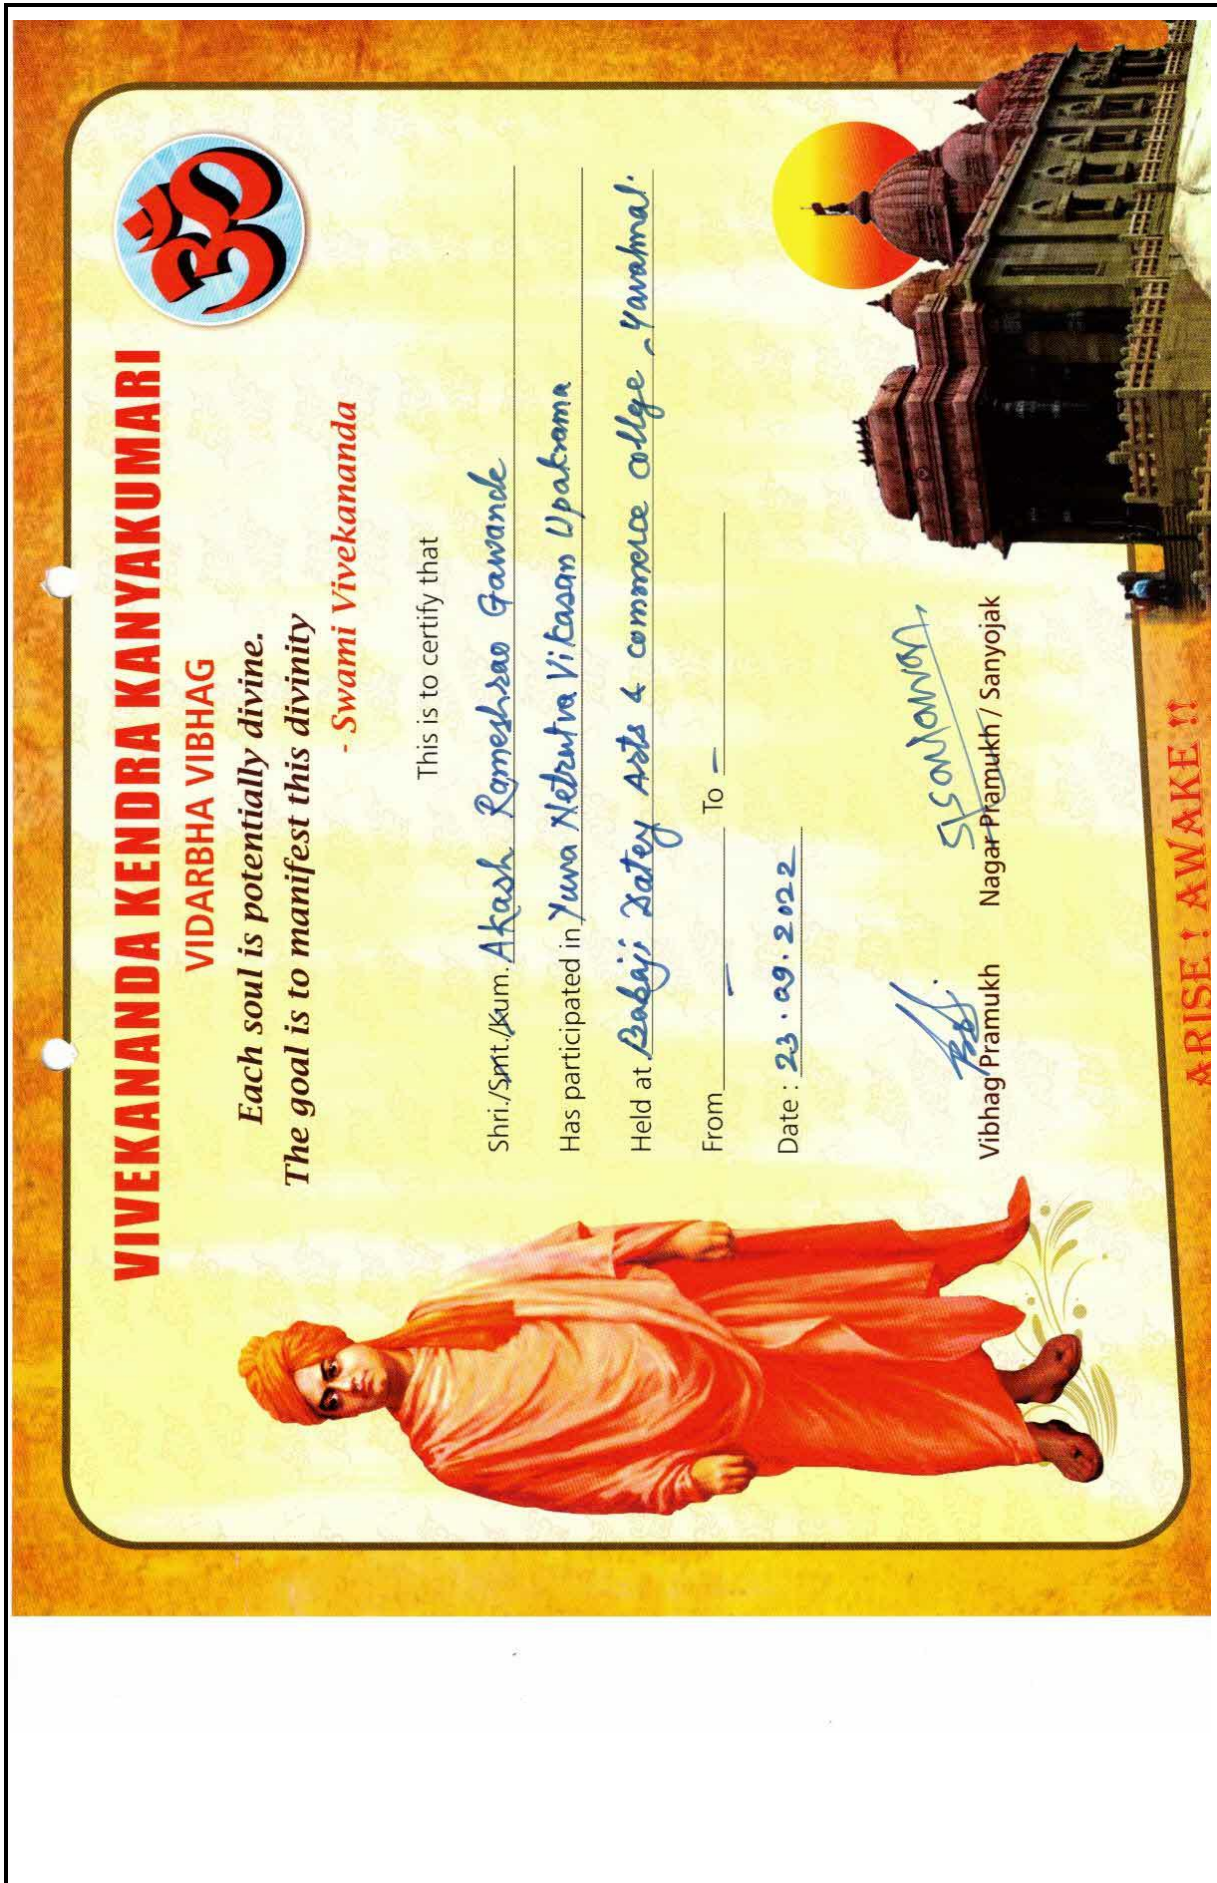 ॐ
VIVEKANANDA KENDRA KANYAKUMARI
VIDARBHA VIBHAG
Each soul is potentially divine.
The goal is to manifest this divinity
- Swami Vivekananda
This is to certify that
Shri./Smt./Kum. Akash Rameshrao Gawande
Has participated in Yuva Netrutva Vikasan Upakrama
Held at Babaji Datey Arts & commerce college - Yavatmal.
From - To -
Date : 23.09.2022
Vibhag Pramukh Nagar Pramukh / Sanyojak
ARISE ! AWAKE !!